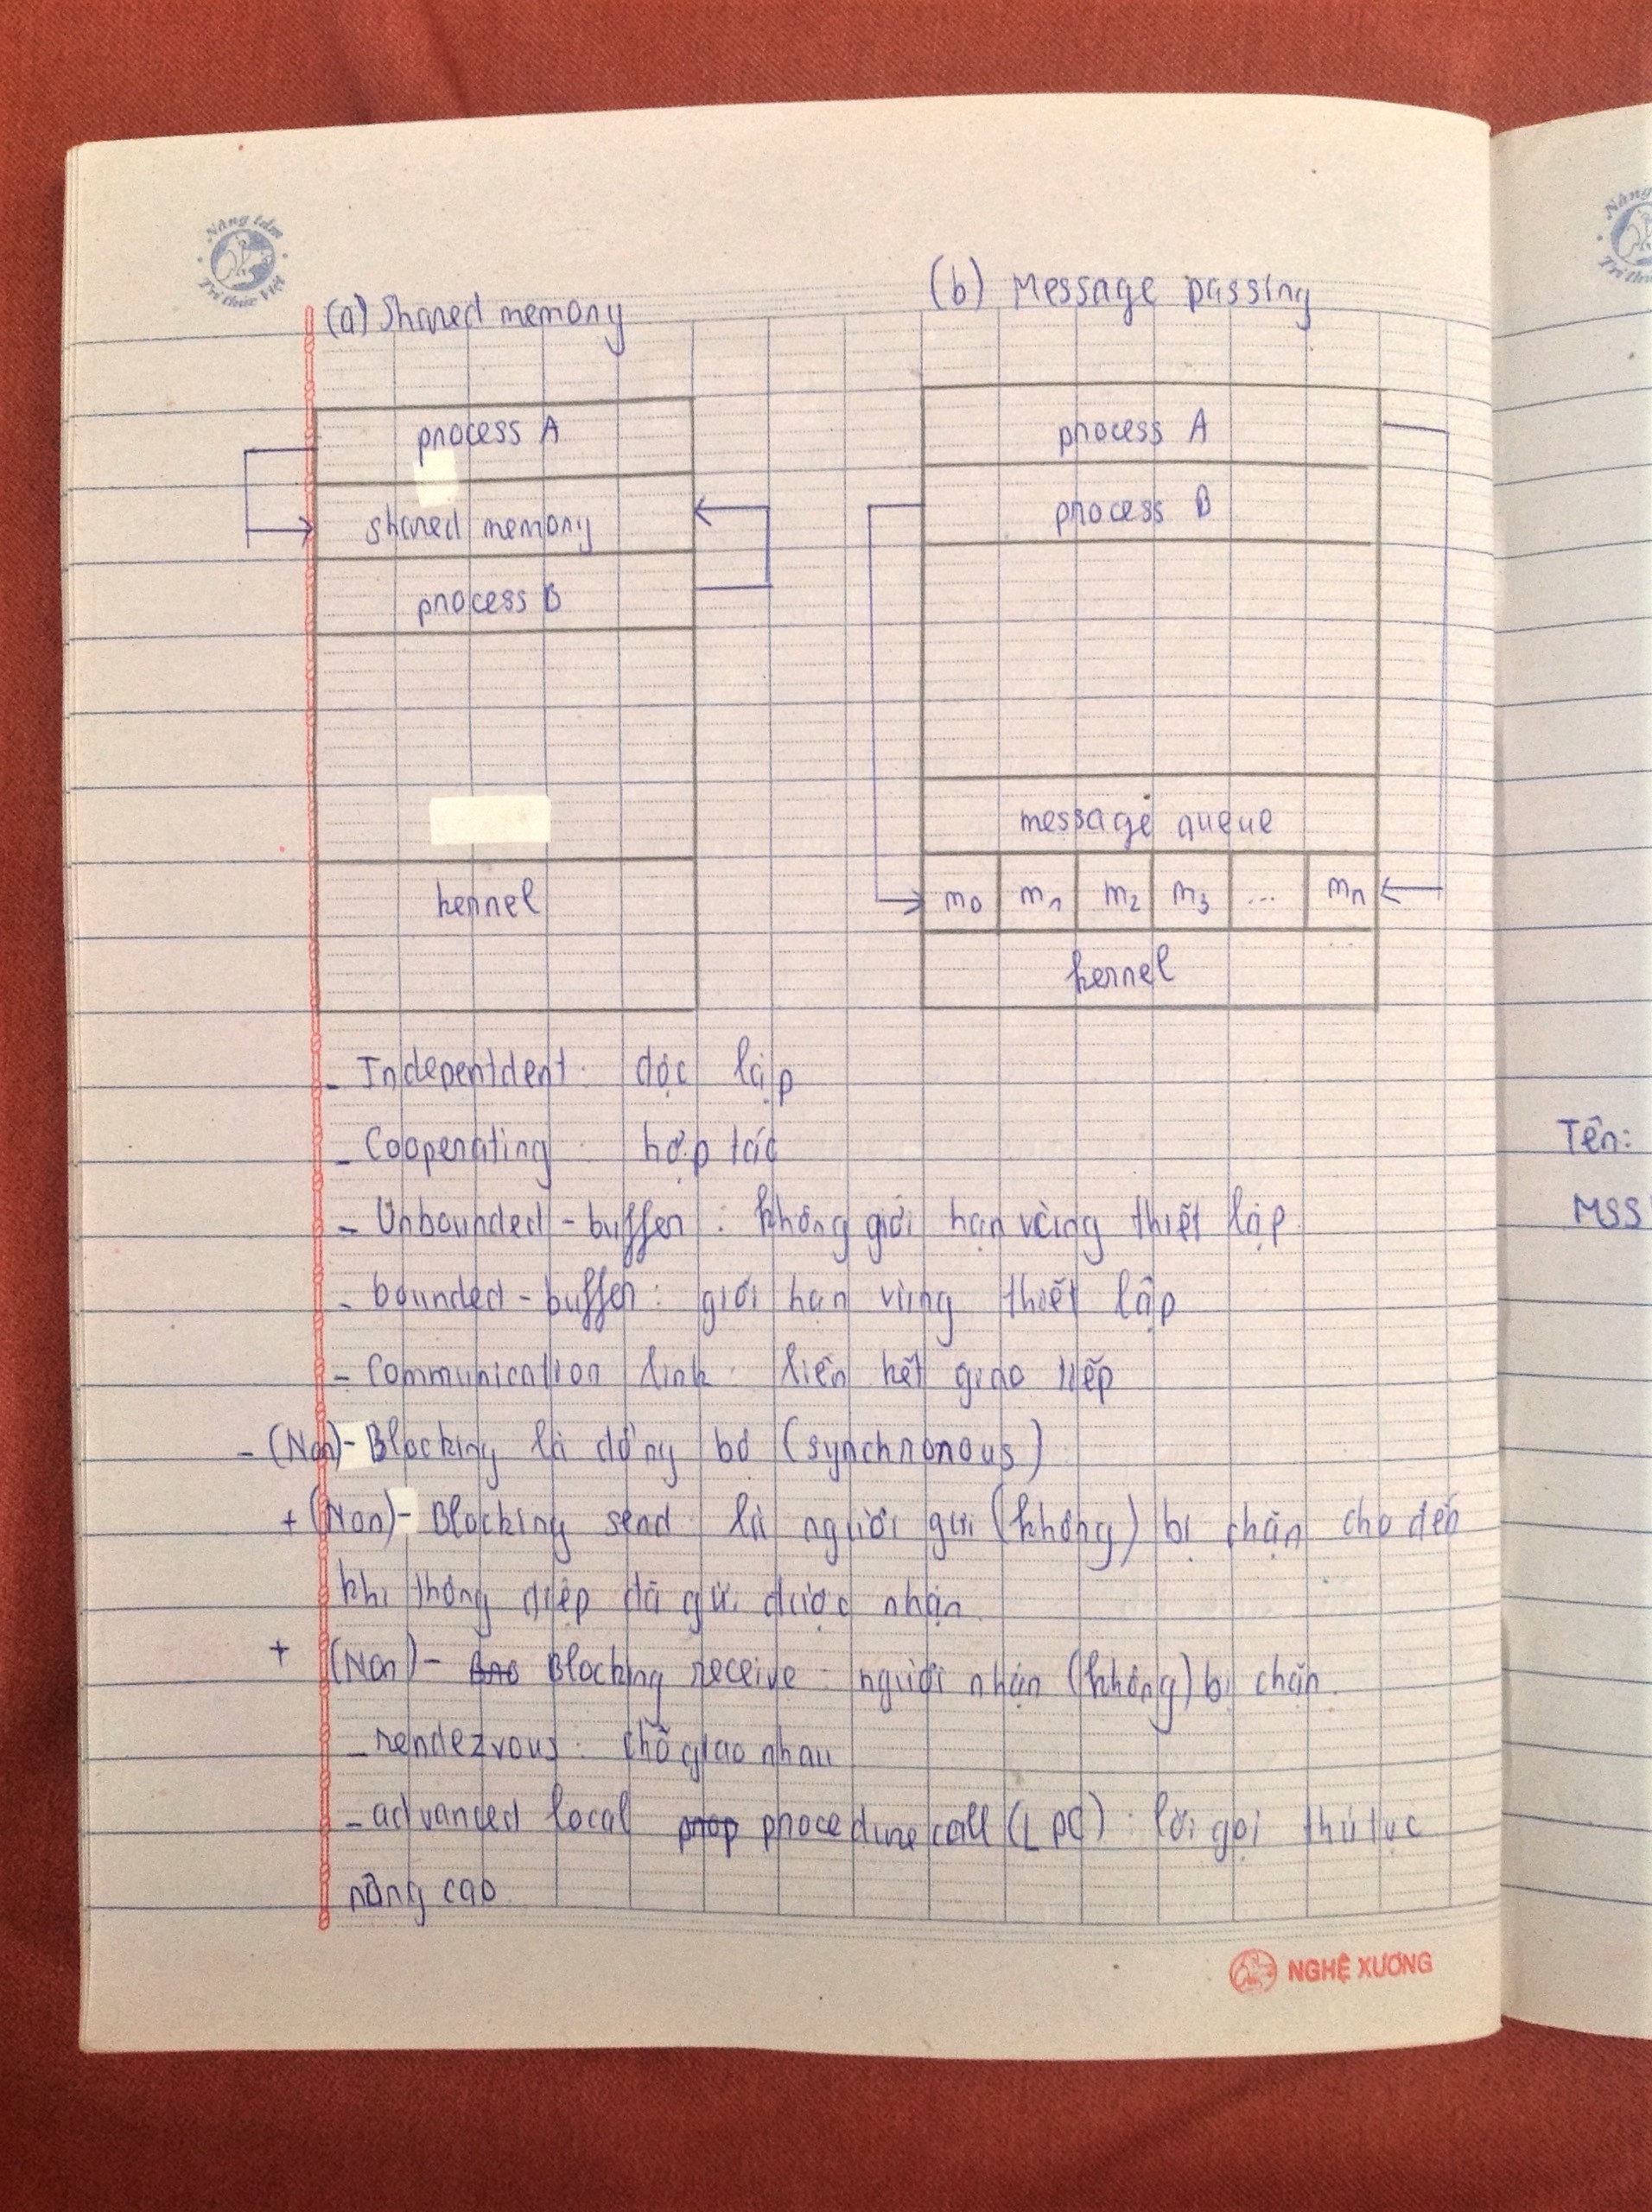 Nâng tầm
Trí thức Việt
(a) Shared memory
process A
shared memory
process B
kernel
(b) Message passing
process A
process B
message queue
m0 m1 m2 m3 ... mn
kernel
- Indepentdent: độc lập
- Cooperating: hợp tác
- Unbounded-buffer: không giới hạn vùng thiết lập
- bounded-buffer: giới hạn vùng thiết lập
- Communication link: liên kết giao tiếp
- (Non)-Blocking là đồng bộ (synchronous)
+ (Non)- Blocking send: là người gửi (không) bị chặn cho đến
khi thông điệp đã gửi được nhận.
+ (Non)- Blocking receive: người nhận (không) bị chặn.
- rendezvous: chỗ giao nhau
- advanced local procedure call (LPC): lời gọi thủ tục
nâng cao
NGHỆ XƯƠNG
Tên:
MSS